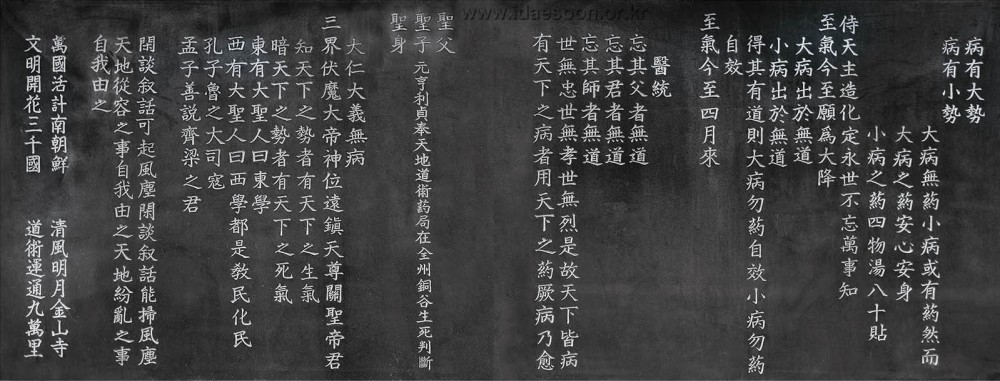 www.idaesoon.or.kr
病有大勢
病有小勢
大病無葯小病或有葯然而
大病之葯安心安身
小病之葯四物湯八十貼
侍天主造化定永世不忘萬事知
至氣今至願爲大降
大病出於無道
小病出於無道
得其有道則大病勿葯自效小病勿葯
自效
至氣今至四月來
醫統
忘其父者無道
忘其君者無道
忘其師者無道
世無忠世無孝世無烈是故天下皆病
有天下之病者用天下之葯厥病乃愈
聖父
聖子 元亨利貞奉天地道術葯局在全州銅谷生死判斷
聖身
大仁大義無病
三界伏魔大帝神位遠鎭天尊關聖帝君
知天下之勢者有天下之生氣
暗天下之勢者有天下之死氣
東有大聖人曰東學
西有大聖人曰西學都是敎民化民
孔子魯之大司寇
孟子善說齊梁之君
閒談叙話可起風塵閒談叙話能掃風塵
天地從容之事自我由之天地紛亂之事
自我由之
萬國活計南朝鮮 清風明月金山寺
文明開花三千國 道術運通九萬里